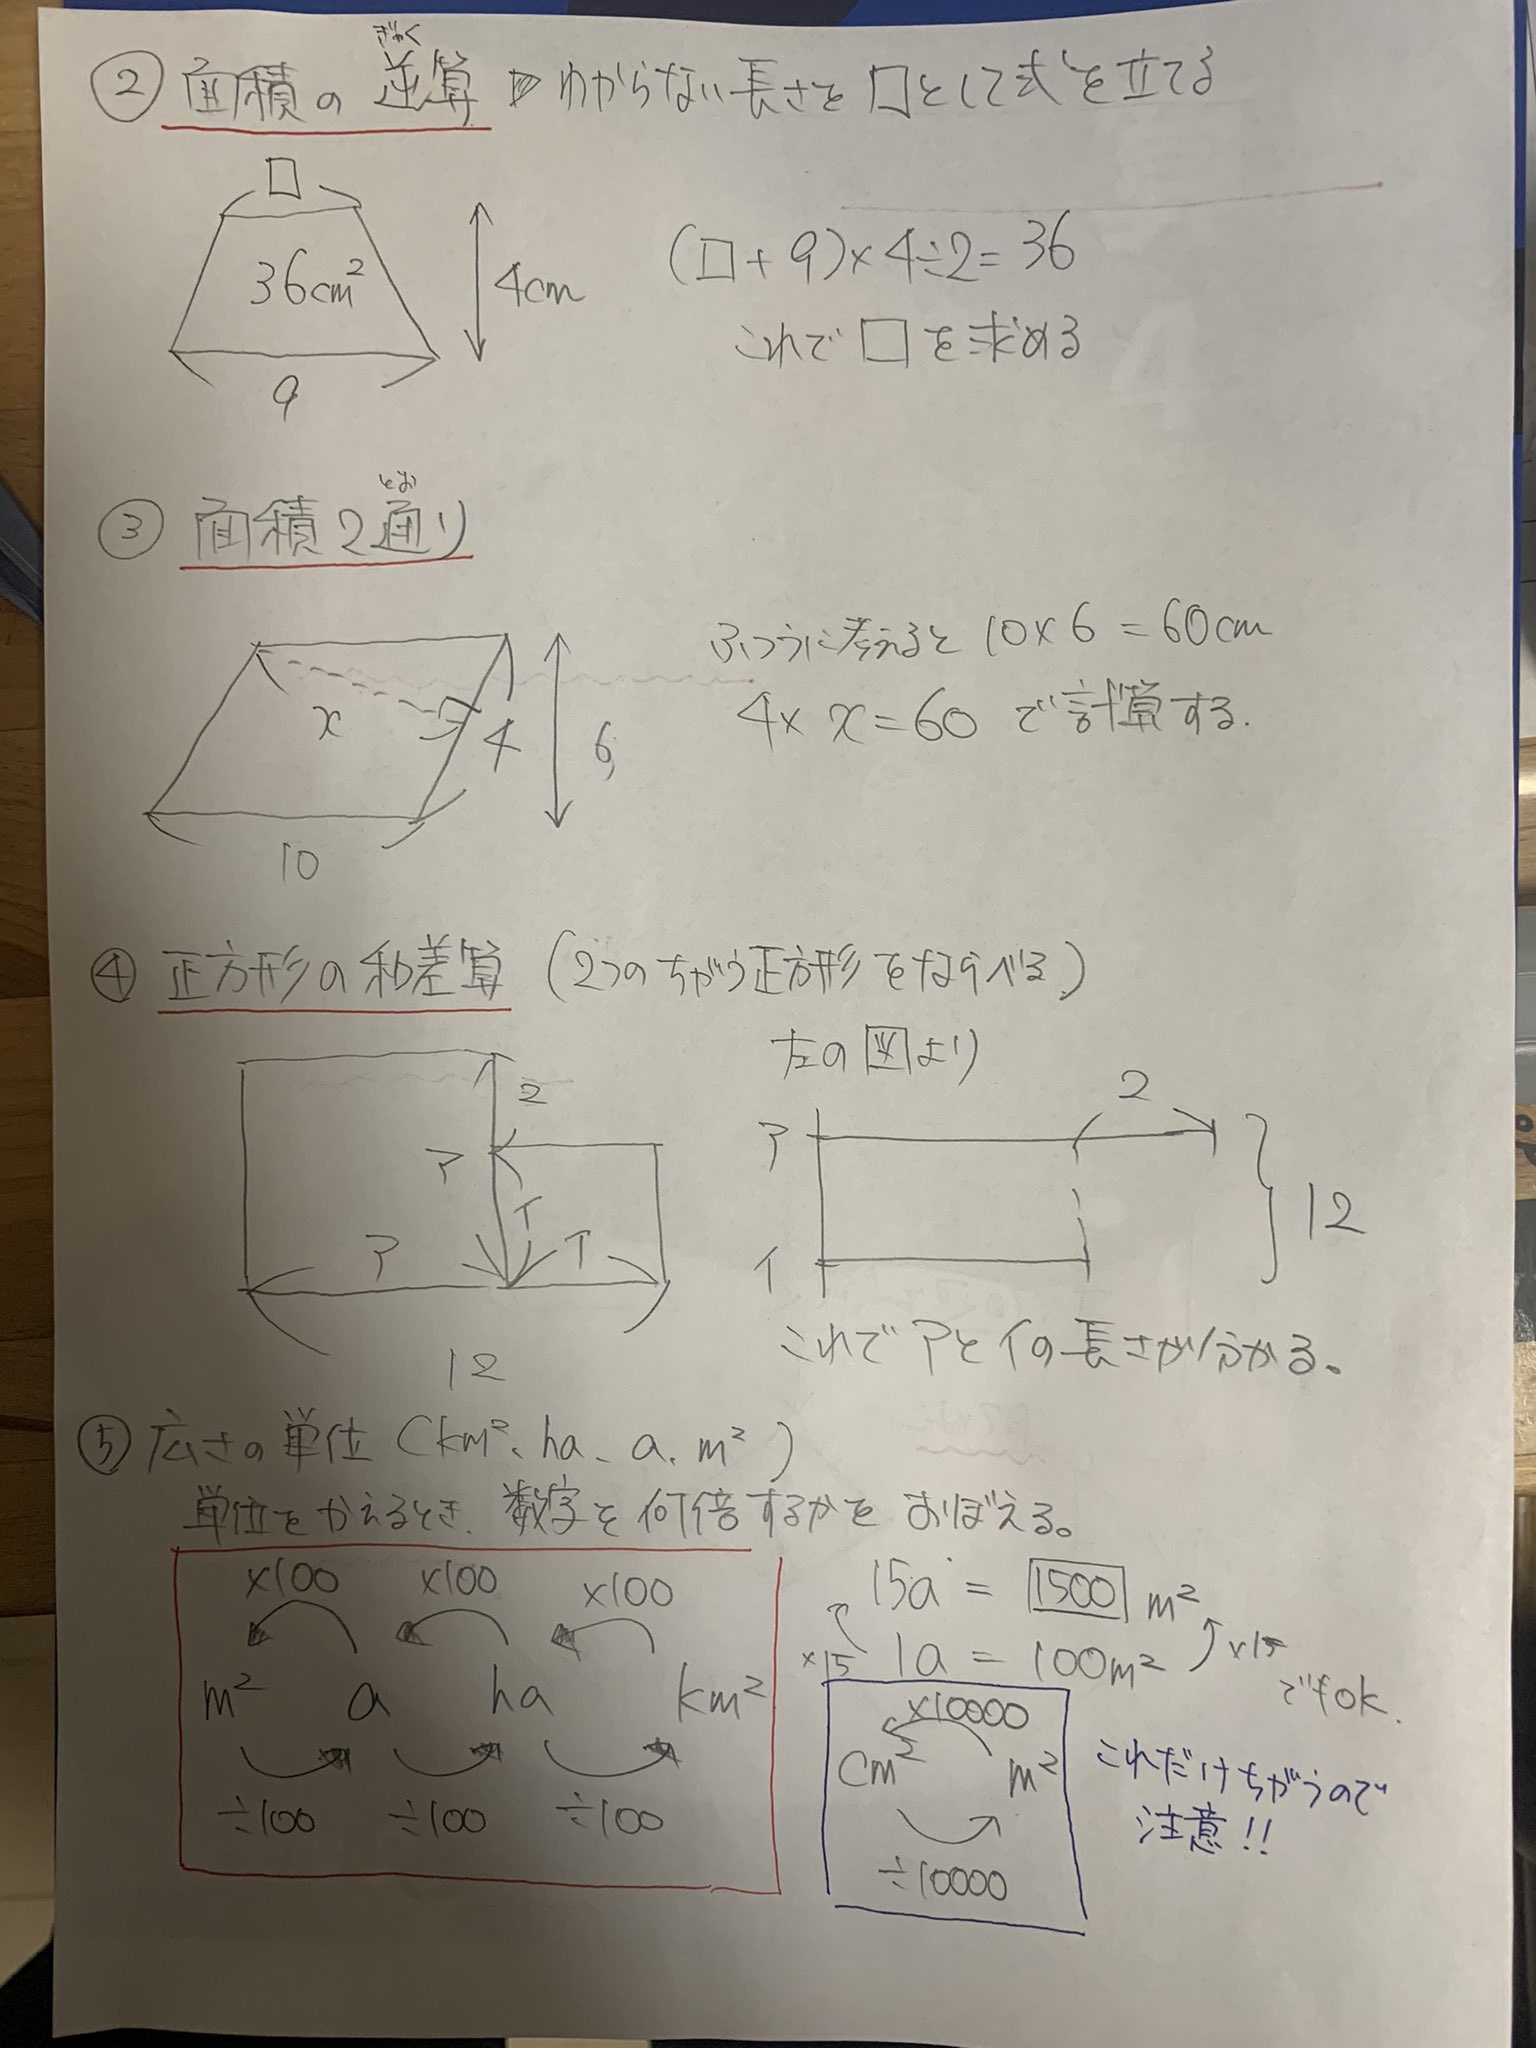 ② 面積の逆算 ▷ わからない長さを□として式を立てる
ぎゃく
□
36cm²
4cm
9
(□+9)×4÷2=36
これで□を求める
③ 面積2通り
とお
x
4
6
10
ふつうに考えると 10×6=60cm
4×x=60 で計算する.
④ 正方形の和差算 (2つのちがう正方形をならべる)
左の図より
2
ア
イ
ア
イ
12
2
ア
イ
12
これでアとイの長さが分かる。
⑤ 広さの単位 (km²、ha、a、m²)
単位をかえるとき、数字を何倍するかをおぼえる。
×100 ×100 ×100
m² a ha km²
÷100 ÷100 ÷100
15a = 1500 m²
×15 1a = 100m² ×15
でもok.
×10000
cm² m²
÷10000
これだけちがうので
注意!!